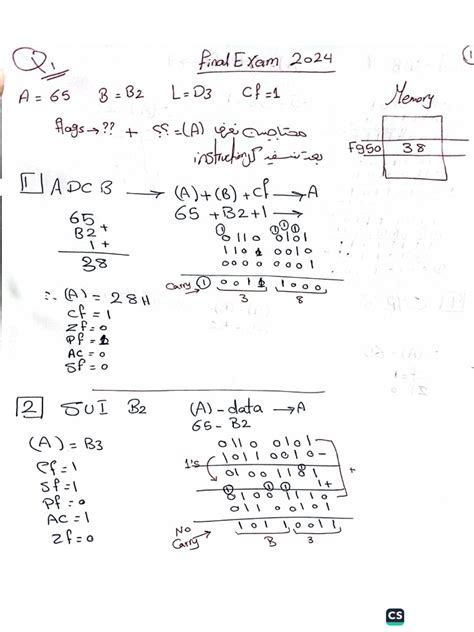 Q1
Final Exam 2024
A = 65 B = B2 L = D3 Cf = 1
Memory
flags → ?? + ؟؟ = (A) محتاجين نعرف
بعد تنفيذ كل instruction
F950 38
1 ADC B → (A) + (B) + Cf → A
65 + B2 + 1 →
65
B2 +
1 +
38
1 1 1 1
0110 0101
1101 0010
0000 0001
Carry 1 0011 1000
3 8
∴ (A) = 28H
Cf = 1
Zf = 0
Pf = 1
AC = 0
Sf = 0
2 SUI B2 (A) - data → A
65 - B2
(A) = B3
Cf = 1
Sf = 1
Pf = 0
AC = 1
Zf = 0
0110 0101
1011 0010 -
1's
0100 1101
1 +
0100 111
0110 0101
+
No Carry 1011 0011
B 3
CS